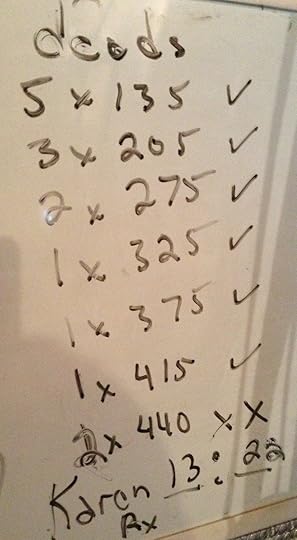 deads
5 x 135 ✓
3 x 205 ✓
2 x 275 ✓
1 x 325 ✓
1 x 375 ✓
1 x 415 ✓
2 x 440 x X
Karen 13:22
Rx